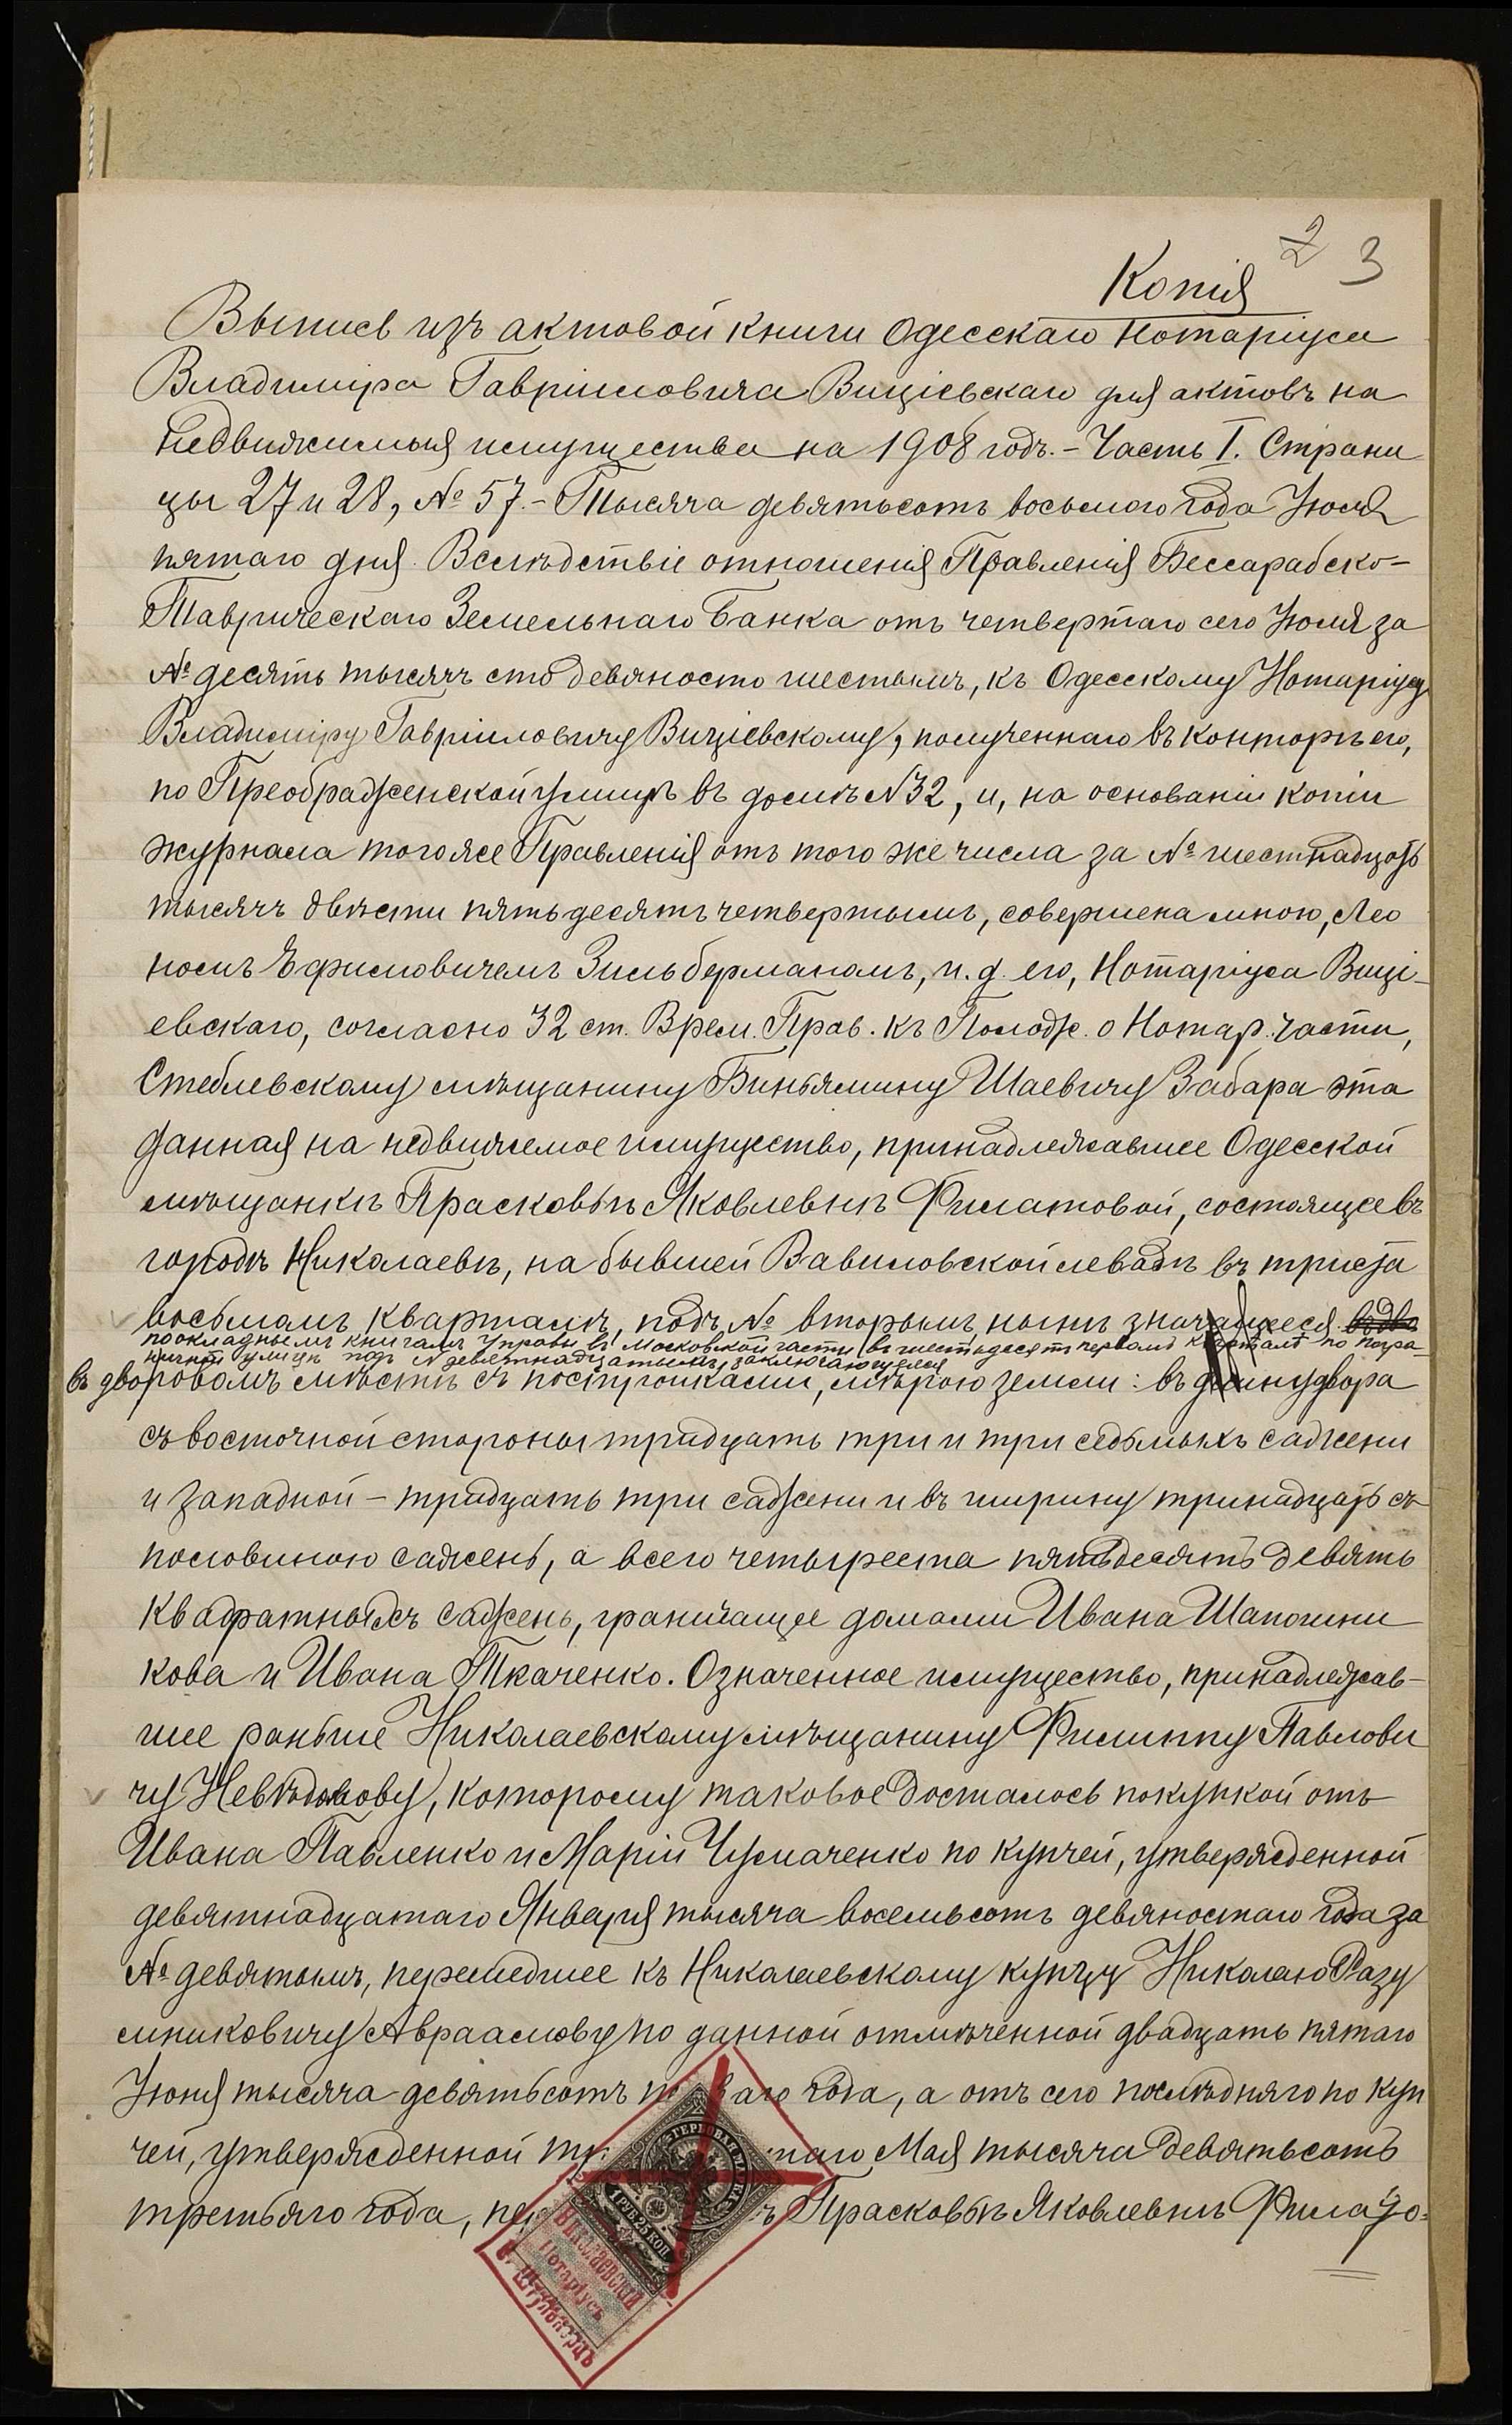 2 3
Копія
Выпись изъ актовой книги Одесскаго Нотаріуса
Владиміра Гавріиловича Виціевскаго для актовъ на
недвижимыя имущества на 1908 годъ. - Часть I. Страни
цы 27 и 28, № 57. - Тысяча девятьсотъ восьмого года Іюля
пятаго дня. Вслѣдствіе отношенія Правленія Бессарабско-
Таврическаго Земельнаго Банка отъ четвертаго сего Іюля за
№ десять тысячъ сто девяносто шестымъ, къ Одесскому Нотаріусу
Владиміру Гавріиловичу Виціевскому, полученнаго въ конторѣ его,
по Преображенской улицѣ въ домѣ N 32, и, на основаніи копіи
журнала того же Правленія отъ того же числа за № шестнадцать
тысячъ двѣсти пятьдесятъ четвертымъ, совершена мною, Лео
номъ Ефимовичемъ Зильберманомъ, и. д. его, Нотаріуса Виці-
евскаго, согласно 32 ст. Врем. Прав. къ Полож. о Нотар. части,
Стеблевскому мѣщанину Биньямину Шаевичу Забара эта
данная на недвижемое имущество, принадлежавшее Одесской
мѣщанкѣ Прасковьѣ Яковлевнѣ Филатовой, состоящее въ
городѣ Николаевѣ, на бывшей Вавиловской левадѣ въ триста
восьмомъ кварталѣ, подъ № вторымъ, нынѣ значащееся въ дво
по окладнымъ книгамъ Управы въ Московской части въ шестьдесятъ первомъ кварталѣ по погра-
ничной улицѣ подъ N девятнадцатымъ, заключающееся
въ дворовомъ мѣстѣ съ постройками, мѣрою земли: въ длину двора
съ восточной стороны тридцать три и три седьмыхъ сажени
и западной - тридцать три сажени и въ ширину тринадцать съ
половиною сажень, а всего четыреста пятьдесятъ девять
квадратныхъ сажень, граничащее домами Ивана Шапошни
кова и Ивана Ткаченко. Означенное имущество, принадлежав-
шее раньше Николаевскому мѣщанину Филиппу Павлови
чу, которому таковое досталось покупкой отъ
Ивана Павленко и Маріи Чумаченко по купчей, утвержденной
девятнадцатаго Января тысяча восемьсотъ девяностаго года за
№ девятымъ, перешедшее къ Николаевскому купцу Николаю Разу
мниковичу Авраамову по данной отмѣченной двадцать пятаго
Іюня тысяча девятьсотъ перваго года, а отъ сего послѣдняго по куп
чей, утвержденной таго Мая тысяча девятьсотъ
третьяго года, Прасковьѣ Яковлевнѣ Филато=
ГЕРБОВАЯ МАРКА
1 РУБ. 25 КОП.
Николаевскій
Нотаріусъ